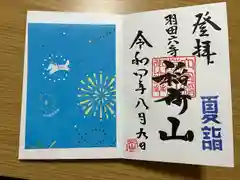 登拝
夏詣
羽田六寺
稲荷山
令和四年八月九日